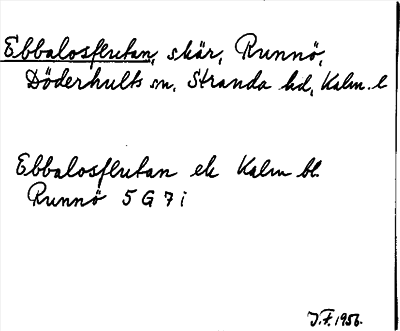 Ebbalosflutan, skär, Runnö,
Döderhults sn, Stranda hd, Kalm. l
Ebbalosflutan ek Kalm bl.
Runnö 5 G 7 i
J.F. 1956.